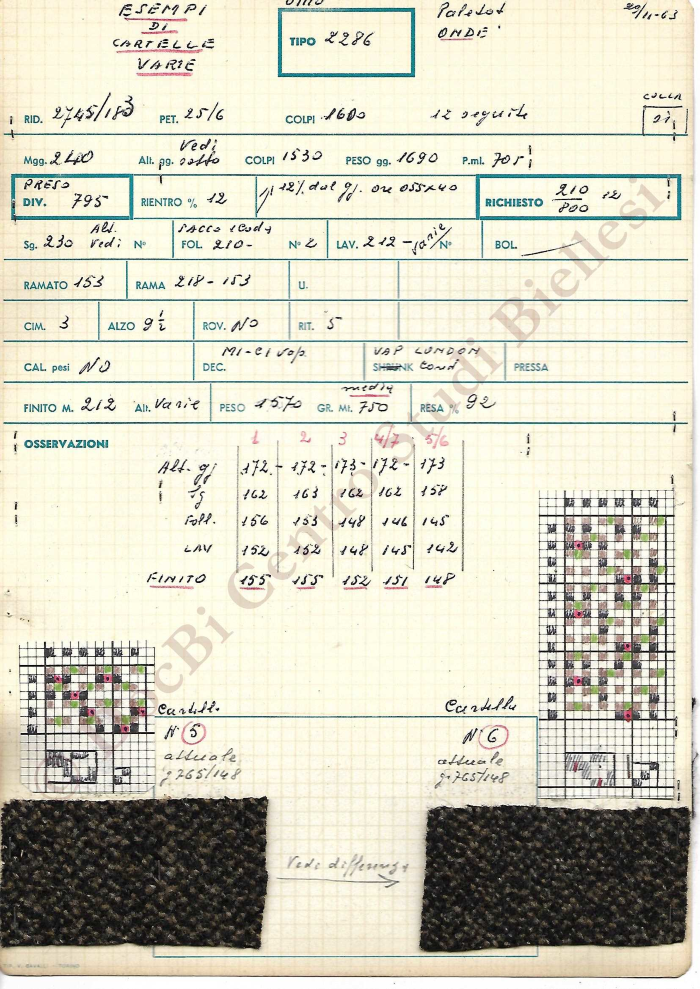 ESEMPI
DI
CARTELLE
VARIE
TIPO 2286
Paletot
ONDE
11-63
RID. 2745/183 PET. 25/6 COLPI 1600 12 seguite
COLLA
SI
Mgg. 2440 Alt. gg. Vedi sotto COLPI 1530 PESO gg. 1690 P.ml. 705
PRESO
DIV. 795 RIENTRO % 12 12% dal gj. ore 055x40 RICHIESTO 210/800 12
Sg. 230 Alt. Vedi N° SACCO 1 Coda FOL. 210- N° 2 LAV. 212- varie N° BOL.
RAMATO 153 RAMA 218-153 U.
CIM. 3 ALZO 9 1/2 ROV. NO RIT. 5
CAL. pesi NO DEC. MI-CI Vap. VAP LONDON SHRUNK Cond PRESSA
FINITO M. 212 Alt. Varie PESO 1570 GR. Mt. media 750 RESA % 92
OSSERVAZIONI
1 2 3 4/7 5/6
Alt. gj 172 - 172 - 173 - 172 - 173
Sg 162 163 162 162 158
Foll. 156 153 148 146 145
LAV 152 152 148 145 142
FINITO 155 155 152 151 148
Cartella
N° 5
attuale
g. 765/148
Cartella
N° 6
attuale
g. 765/148
Vedi differenza
© DocBi Centro Studi Biellesi